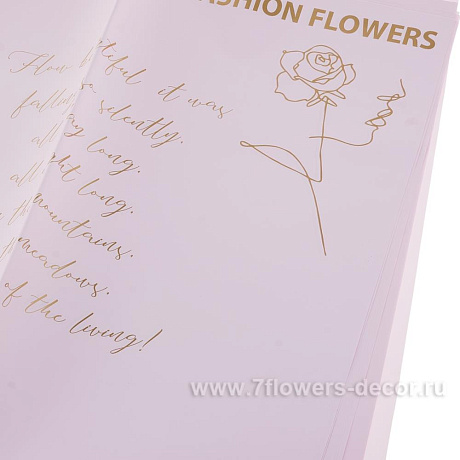 FASHION FLOWERS
How
it was
falling silently.
all day long.
all night long.
mountains.
meadows.
of the living!
www.7flowers-decor.ru